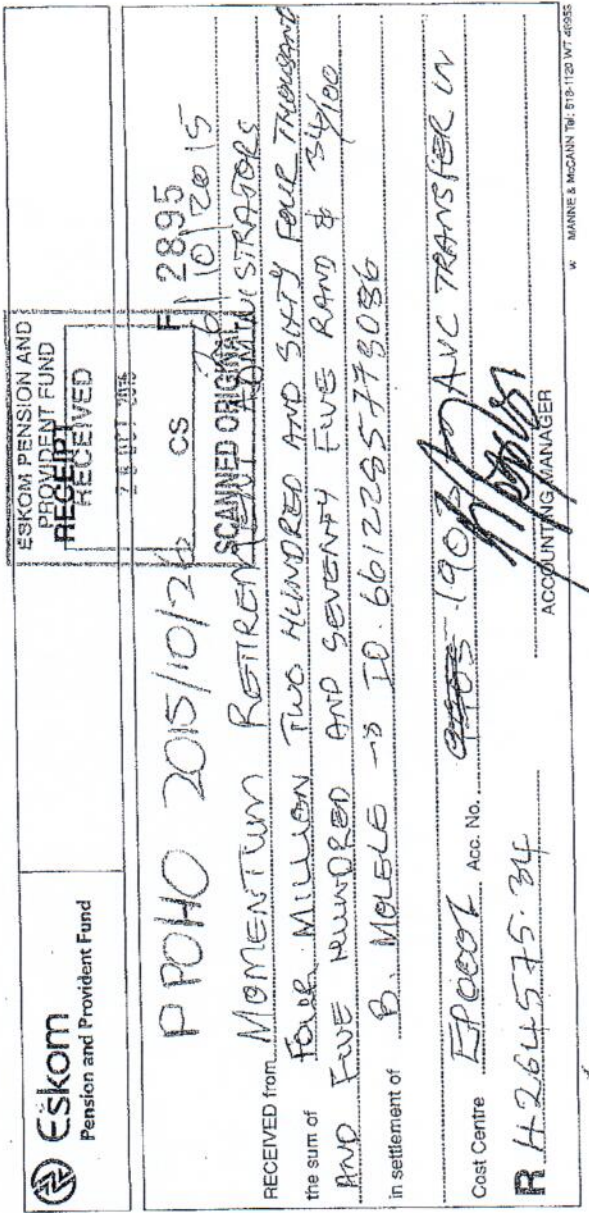 Eskom
Pension and Provident Fund
ESKOM PENSION AND
PROVIDENT FUND
RECEIPT
RECEIVED
CS
SCANNED ORIGINAL
P POHO 2015/10/2
F 2895
/10/2015
RECEIVED from MOMENTUM RETIREMENT ADMINISTRATORS
the sum of FOUR MILLION TWO HUNDRED AND SIXTY FOUR THOUSAND
AND FIVE HUNDRED AND SEVENTY FIVE RAND & 34/100
in settlement of B. MOLELE ID 6612285778086
Cost Centre Acc. No. 190 AVC TRANSFER IN
R 4264575.34
ACCOUNTING MANAGER
W MANNE & McCANN Tel: 618-1120 WT 46953